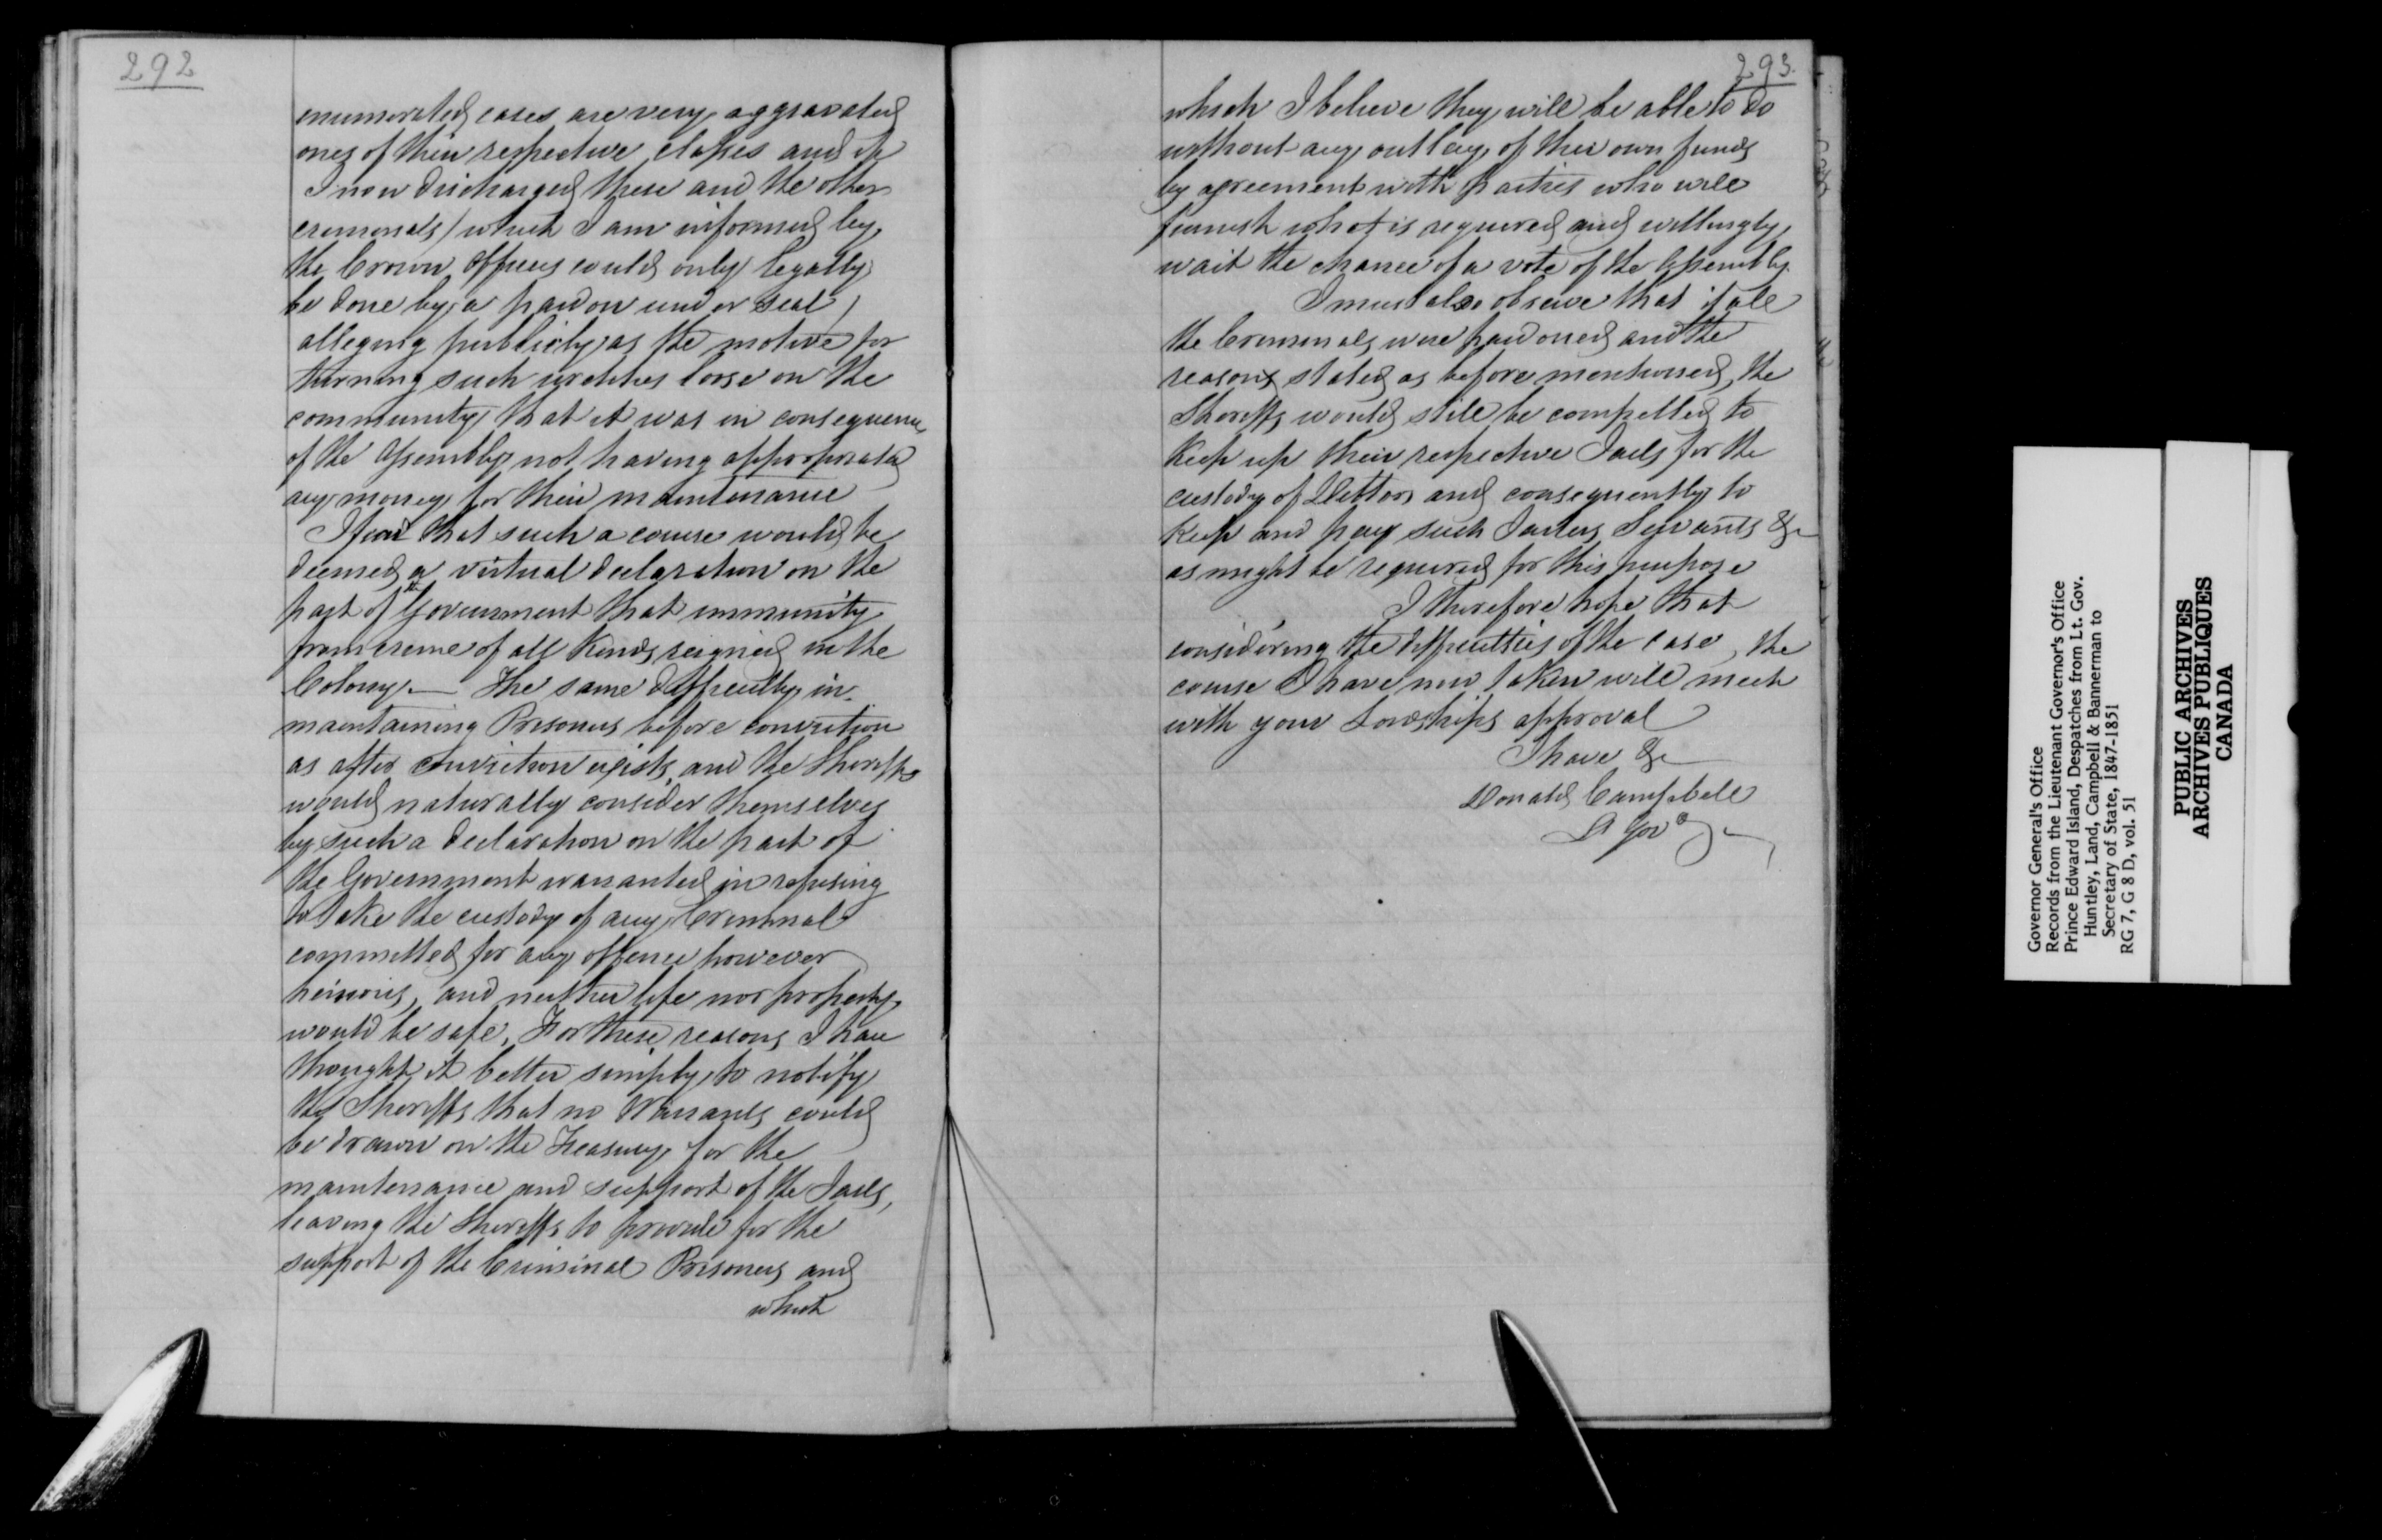 292
enumerated cases are very aggravated
ones of their respective classes and if
I now discharged these and the other
criminals (which I am informed by
the Crown Officers could only legally
be done by a pardon under seal)
alleging publicly as the motive for
turning such wretches loose on the
community that it was in consequence
of the Assembly not having appropriated
any money for their maintenance
I fear that such a course would be
deemed a virtual declaration on the
part of the Government that immunity
from crime of all kinds reigned in the
Colony. — The same difficulty in
maintaining Prisoners before conviction
as after conviction exists, and the Sheriffs
would naturally consider themselves
by such a declaration on the part of
the Government warranted in refusing
to take the custody of any Criminal
committed for any offence however
heinous, and neither life nor property
would be safe. For these reasons I have
thought it better simply to notify
the Sheriffs that no Warrants could
be drawn on the Treasury for the
maintenance and support of the Jails,
leaving the Sheriffs to provide for the
support of the Criminal Prisoners and
which
293.
which I believe they will be able to do
without any outlay of their own funds
by agreement with parties who will
furnish what is required and willingly
wait the chance of a vote of the Assembly.
I must also observe that if all
the Criminals were pardoned and the
reasons stated as before mentioned, the
Sheriffs would still be compelled to
keep up their respective Jails for the
custody of Debtors and consequently to
keep and pay such Jailers Servants &c
as might be required for this purpose
I therefore hope that
considering the difficulties of the case, the
course I have now taken will meet
with your Lordships approval
I have &c
Donald Campbell
Lt Govr
Governor General's Office
Records from the Lieutenant Governor's Office
Prince Edward Island, Despatches from Lt. Gov.
Huntley, Land, Campbell & Bannerman to
Secretary of State, 1847-1851
RG 7, G 8 D, vol. 51
PUBLIC ARCHIVES
ARCHIVES PUBLIQUES
CANADA